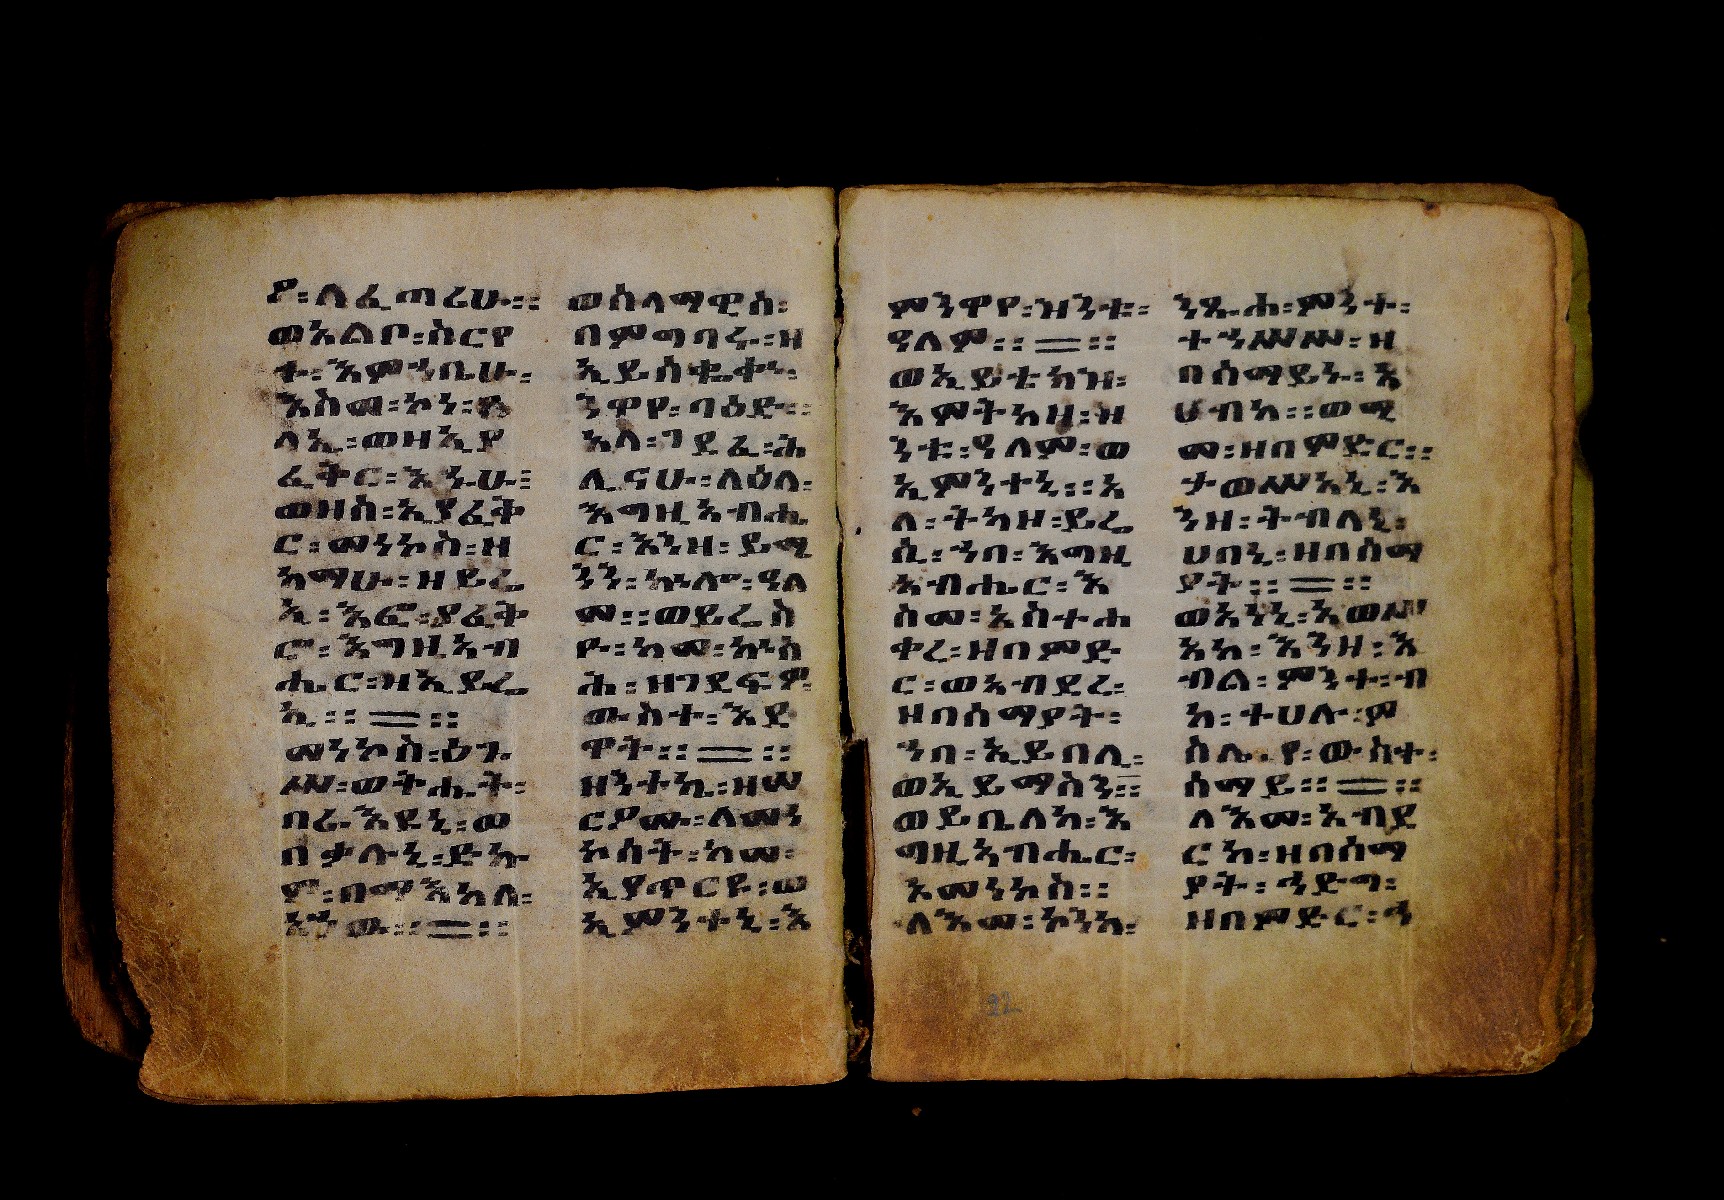 ዖ፡ለፈጣሪሁ፡፡
ወአልቦ፡ስርየ
ት፡እምኀቤሁ፡
እስመ፡ኮነ፡
ወዘኢያ
ፈትር፡እኁሁ፡
ወዘስ፡ኢያፈቅ
ር፡መነኮስ፡ዘ
ከማሁ፡ዘይሬ
ኢ፡እፎ፡ያፈቅ
ሮ፡እግዚአብ
ሔር፡ዘኢይሬ
ኢ፡፡
መነኮስ፡ዕጉ
ሥ፡ወትሑት፡
በሬ፡እደዊ፡ወ
በቃሉኒ፡ድኩ
ም፡በማእከለ፡
አኀው፡፡
ወሰላማዊስ፡
በምግባሩ፡ዘ
ኢይሰቊቁ፡
ንዋየ፡ባዕድ፡
አላ፡ገደፈ፡ሕ
ሊናሁ፡ለዕለ፡
እግዚአብሔ
ር፡እንዘ፡ይሜ
ንን፡ኵሎ፡ዓለ
መ፡፡ወይሬስ
ዮ፡ከመ፡ኵስ
ሕ፡ዘገደፍዎ፡
ውስተ፡አደ
ጥት፡፡
ዘንተኬ፡ዘሠ
ርዖሙ፡ለመነ
ኮሳት፡ከመ፡
ኢያጥርዩ፡ወ
ኢምንተኒ፡እ
ምንዋየ፡ዝንቱ፡
ዓለም፡፡
ወኢይተክዝ፡
እምትካዘ፡ዘ
ንቱ፡ዓለም፡ወ
ኢምንተኒ፡፡አ
ላ፡ትካዘ፡ይረ
ሲ፡ኀበ፡እግዚ
አብሔር፡እ
ስመ፡አስተሐ
ቀረ፡ዘበምድ
ር፡ወአብደረ፡
ዘበሰማያት፡
ኀበ፡ኢይበሊ፡
ወኢይማስን፡፡
ወይቤለከ፡እ
ግዚአብሔር፡
ኦመነኮስ፡፡
ለእመ፡ኮንከ፡
ንጹሐ፡ምንተ፡
ተኀሥሥ፡ዘ
በሰማይኑ፡አ
ሀብከ፡፡ወሚ
መ፡ዘበምድር፡፡
ታወሥአኒ፡እ
ንዘ፡ትብለኒ፡
ሀበኒ፡ዘበሰማ
ያት፡፡
ወአነኒ፡አወሥ
አከ፡እንዘ፡እ
ብል፡ምንተ፡ብ
ከ፡ተሀሉ፡ም
ስሌየ፡ውስተ፡
ሰማይ፡፡
ለእመ፡አብደ
ርከ፡ዘበሰማ
ያት፡ኀድግ፡
ዘበምድር፡ኀ
22